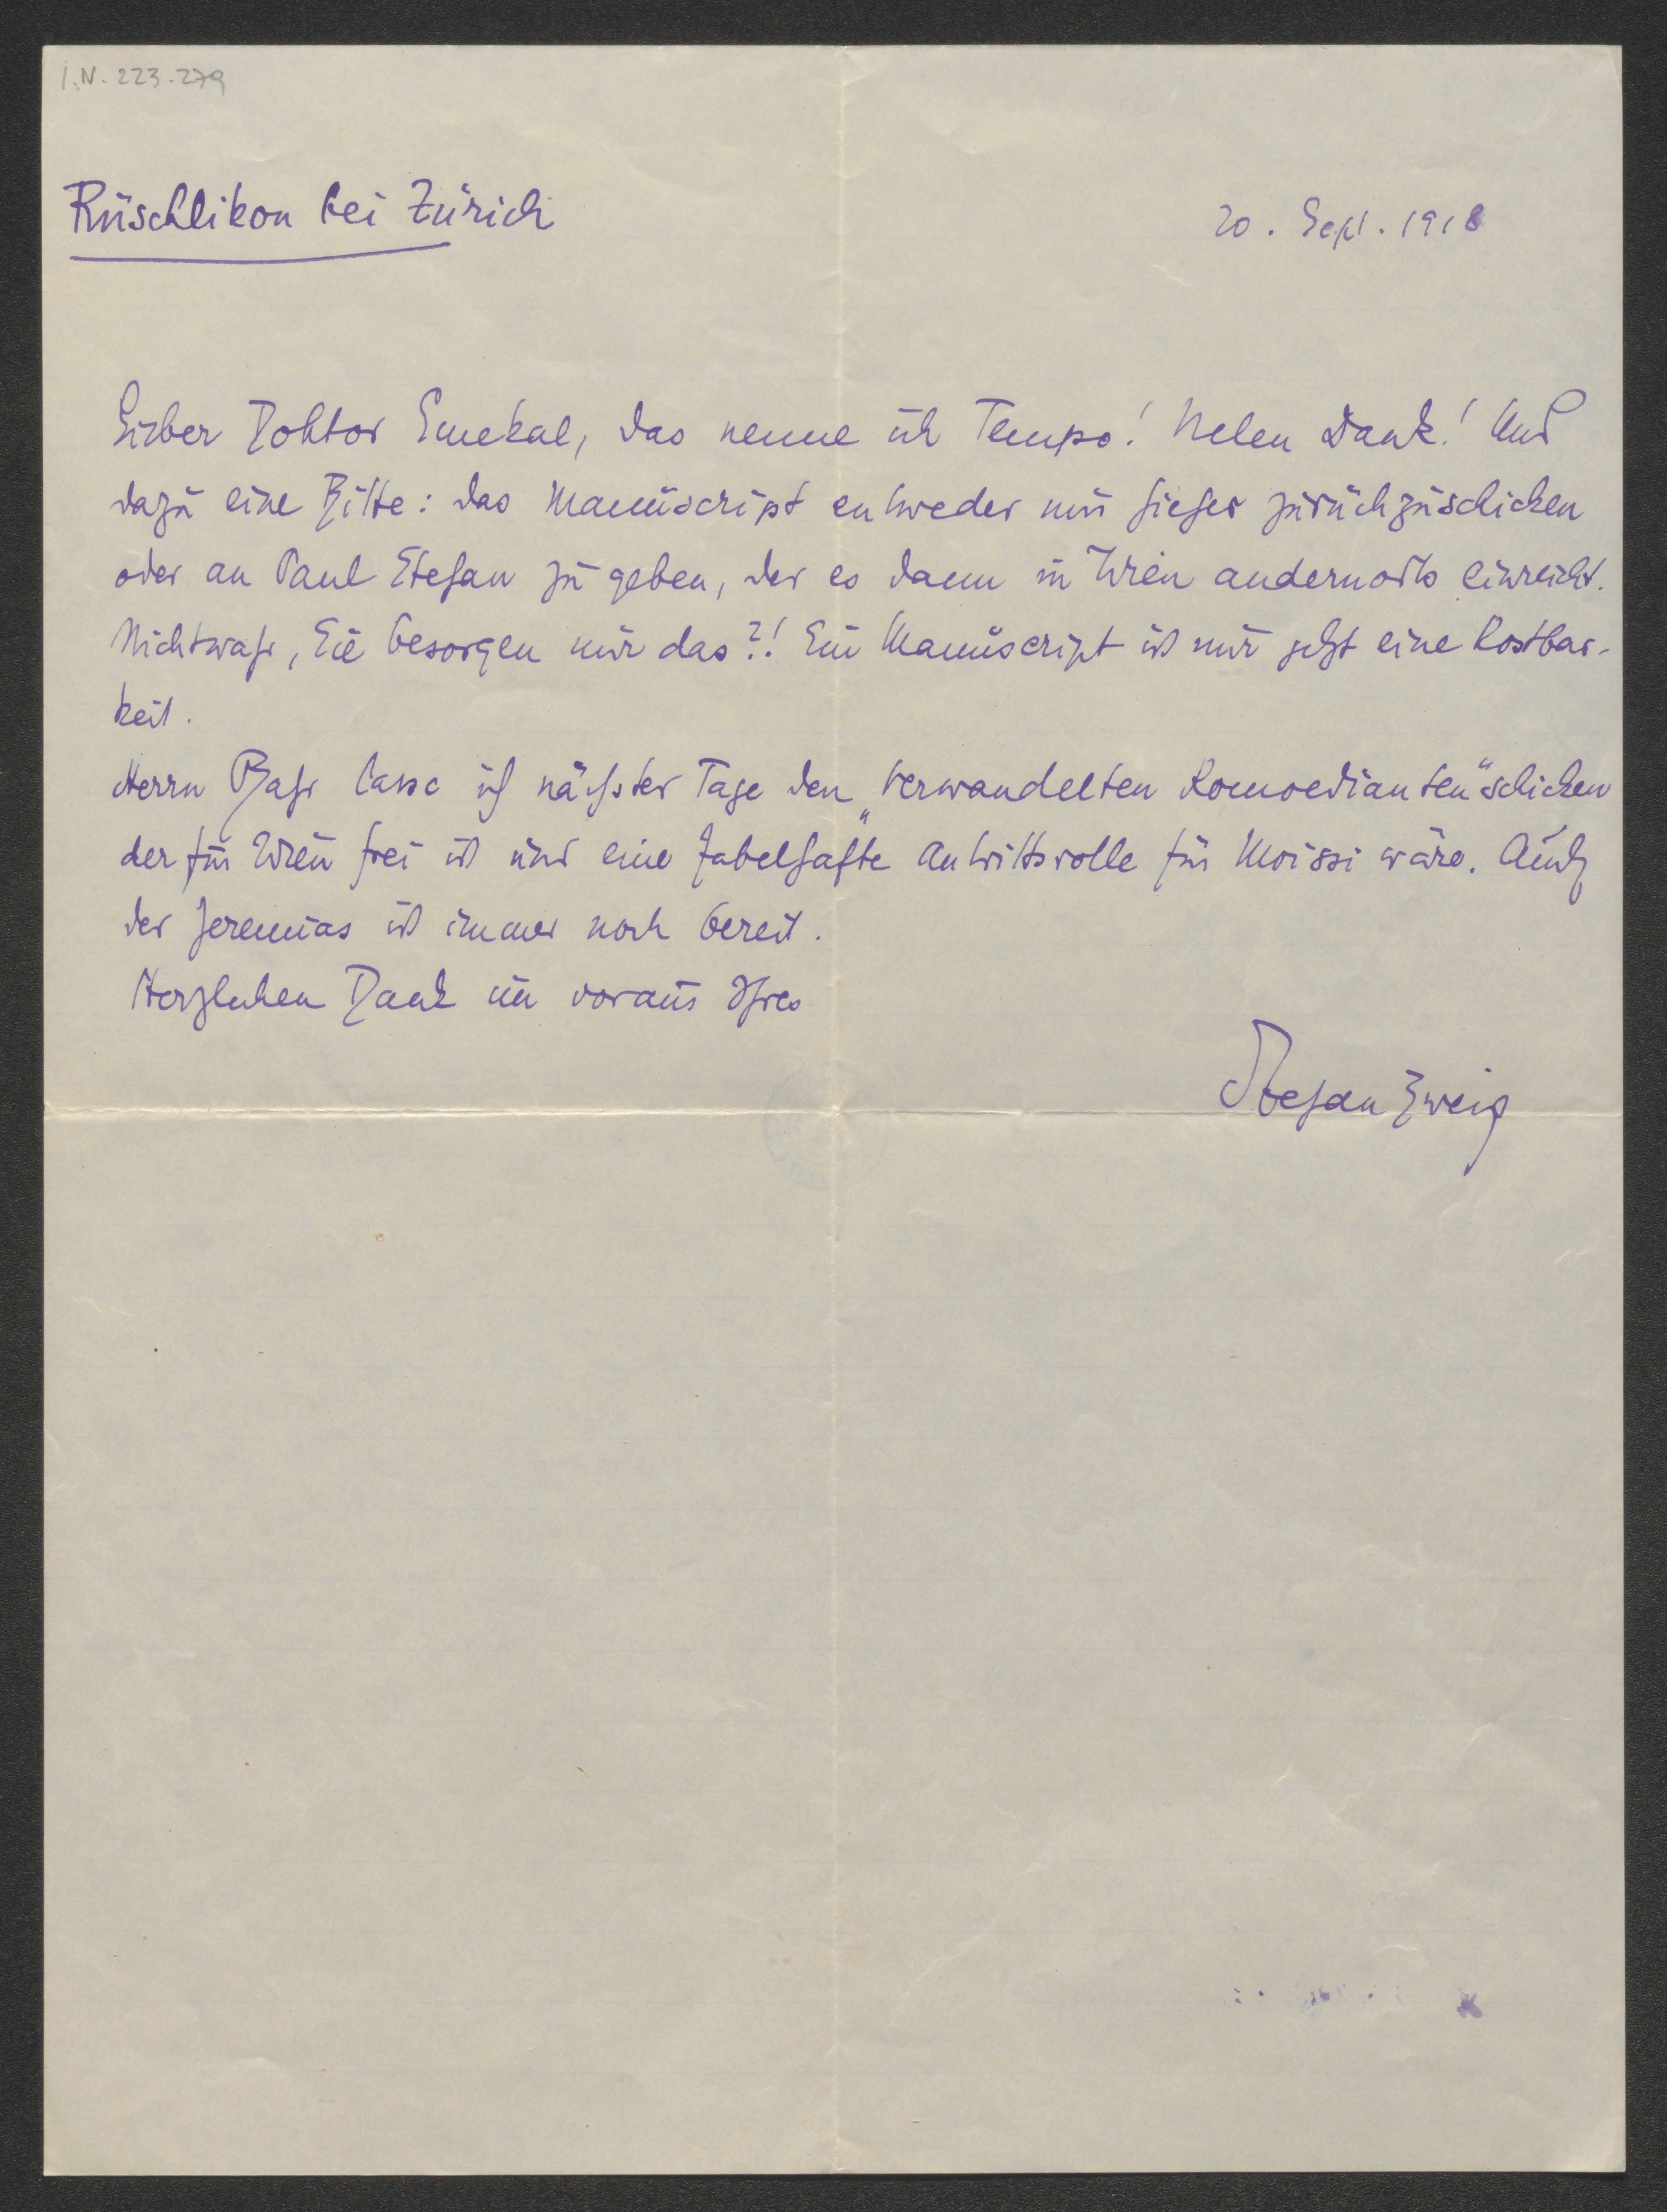 I.N. 223.279
Rüschlikon bei Zürich
20. Sept. 1918
Lieber Doktor Smekal, das nenne ich Tempo! Vielen Dank! Und
dazu eine Bitte: das Manuscript entweder mir hieher zurückzuschicken
oder an Paul Stefan zu geben, der es dann in Wien andernorts einreicht.
Nichtwahr, Sie besorgen mir das?! Ein Manuscript ist mir jetzt eine Kostbar-
keit.
Herrn Bahr lasse ich nächster Tage den „verwandelten Komoedianten" schicken
der für Wien frei ist und eine fabelhafte Antrittsrolle für Moissi wäre. Auch
der Jeremias ist immer noch bereit.
Herzlichen Dank im voraus Ihres
Stefan Zweig